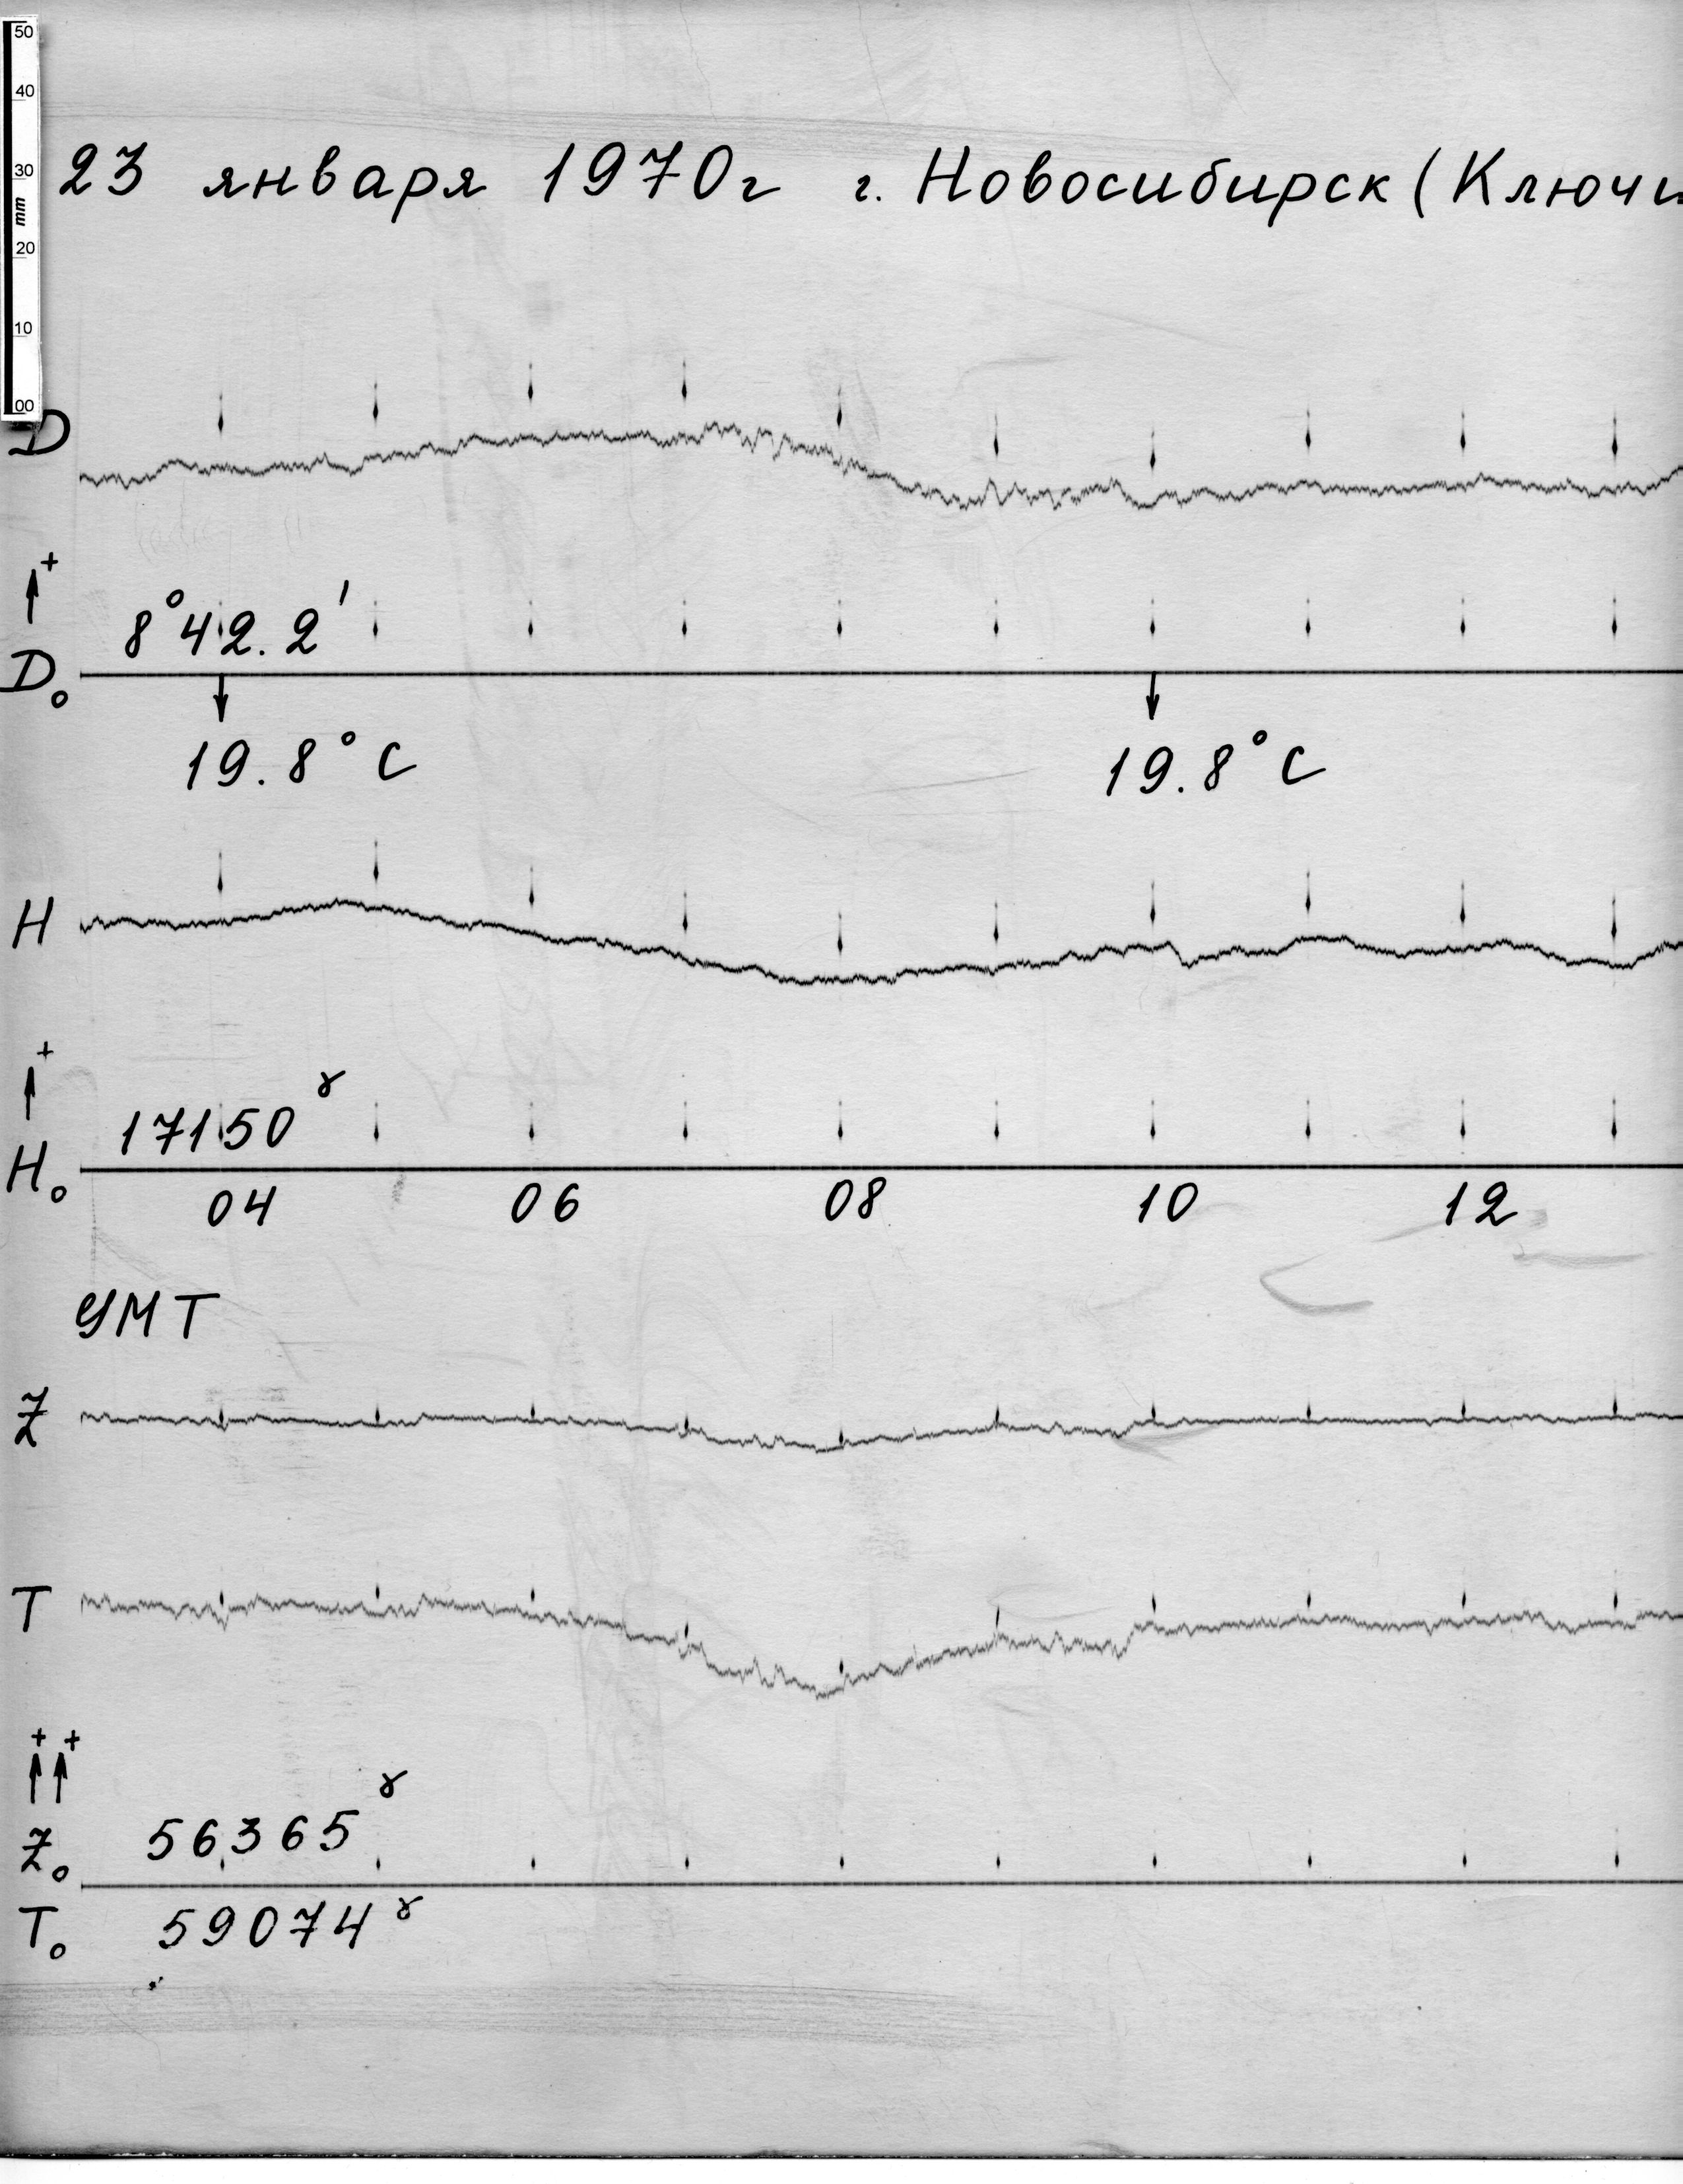 50
40
30
mm
20
10
00
23 января 1970г г. Новосибирск (Ключи
D
+
8°42.2'
D₀
19.8°C 19.8°C
H
+
17150 γ
H₀
04 06 08 10 12
УМТ
Z
T
+ +
56365 γ
Z₀
T₀ 59074 γ